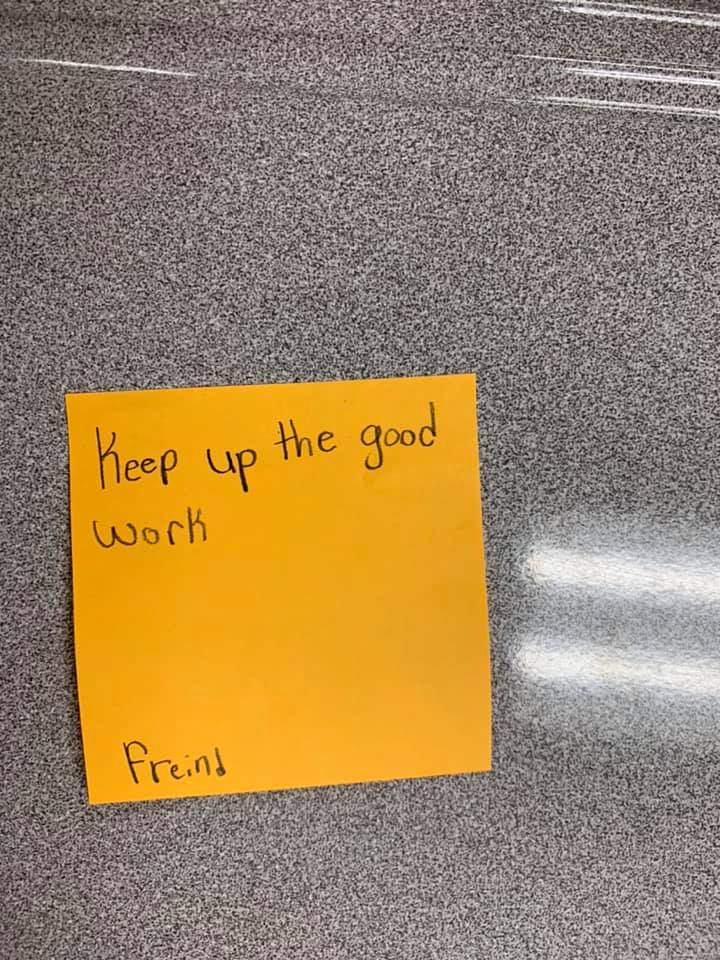 Keep up the good
work
Freind